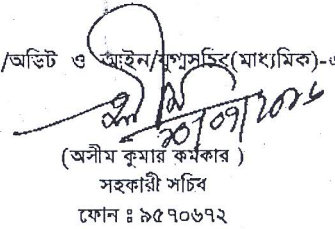 /অডিট ও আইন/যুগ্মসচিব(মাধ্যমিক)-
২০/০৭/২০১৬
(অসীম কুমার কর্মকার )
সহকারী সচিব
ফোন ঃ ৯৫৭০৬৭২